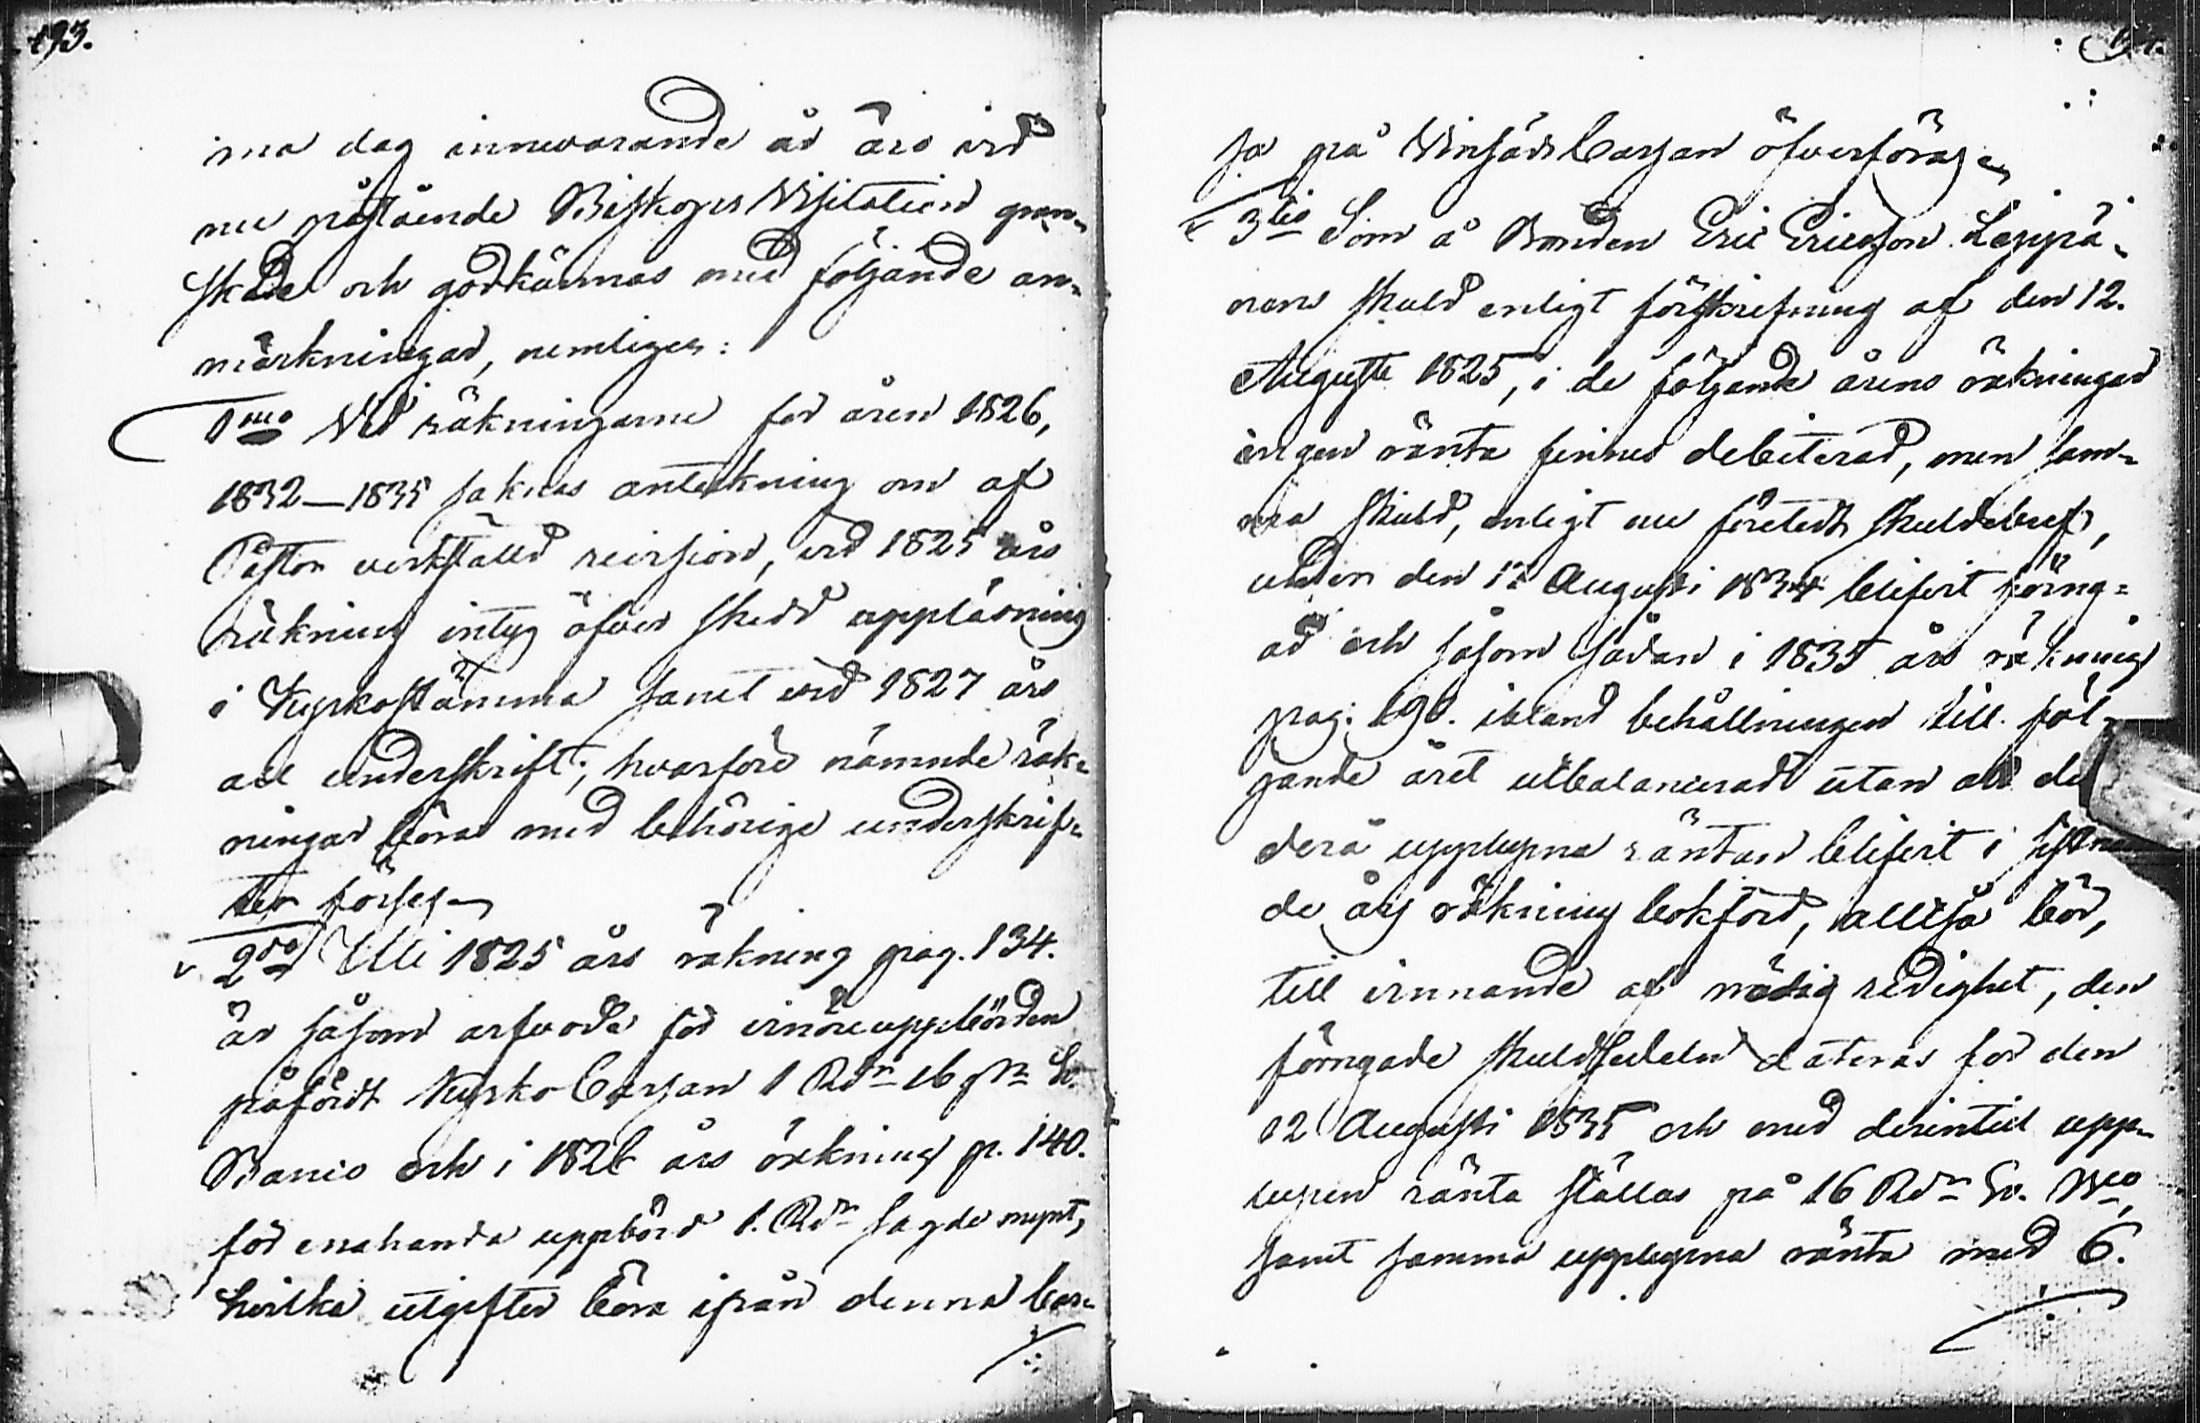 193.
ma dag innevarande år äro vid
nu påstående Biskops Visitation gran-
skade och godkännas med följande an-
märkningar, nemligen:
1mo Vid räkningarne för åren 1826,
1832—1835 saknas anteckning om af
Pastor verkställd revision, vid 1825 års
räkning intyg öfver skedd uppläsning
i Kyrkostämma samt vid 1827 års
all underskrift; hvarföre nämnde räk-
ningar böra med behörige underskrif-
ter förses
2do Uti 1825 års räkning pag. 134.
är såsom arfvode för vinöreuppbörden
påfördt Kyrko Cassan 1 Rdr 16 sk. Sv.
Banco och i 1826 års räkning p. 140.
för enahanda uppbörd 1. Rdr sagde mynt,
hvilka utgifter böra ifrån denna Cas-
sa på Vinsäds Cassan öfverföras
3tio Som å Bonden Eric Ericsson Leppä-
nens skuld enligt förskrifning af den 12.
Augusti 1825, i de följande årens räkningar
ingen ränta finnes debiterad, men sam-
ma skuld, enligt nu företedt skuldebref,
den 12 Augusti 1834 blifvit förng-
ad och såsom sådan i 1835 års räkning
pag. 190. ibland behållningen till föl-
jande året utbalancerad utan att de
derå upplupna räntan blifvit i sistnäm
de års räkning bokförd, alltså bör,
till vinnande af nödig redighet, den
förngade skuldsedeln dateras för den
12 Augusti 1835 och med derintill upp-
lupen ränta ställas på 16 Rdr Sv. Bco,
samt samma upplupna ränta med 6.